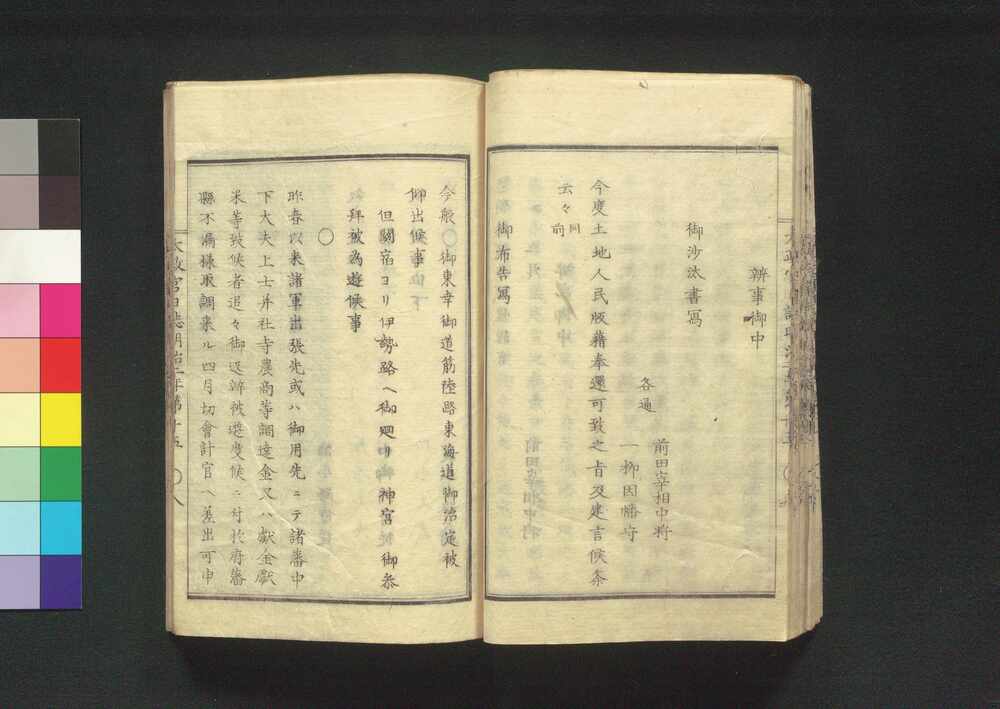 辨事御中
御沙汰書寫
前田宰相中将
各通
一柳因幡守
今度土地人民版籍奉還可致之旨及建言候条
云々同前
御布告寫
今般〇御東幸御道筋陸路東海道御治定被
仰出候事
但關宿ヨリ伊勢路ヘ御廻リ神宮御参
拜被為遊候事
〇
昨春以来諸軍出張先或ハ御用先ニテ諸藩中
下大夫上士并社寺農商等調達金又ハ献金獻
米等致候者追々御返辨被遊度候ニ付於府藩
縣不漏様取調来ル四月切會計官ヘ差出可申
太政官日誌明治二年第十五 〇八